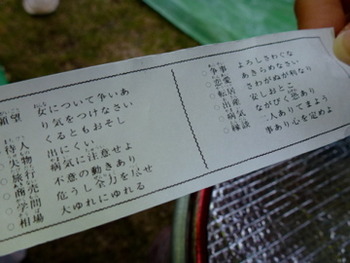 願望 女について争いあり気をつけなさい
○待人 くるともおそし
○失物 出にくい
○旅行 病気に注意せよ
○商売 不意の動きあり
○学問 危うし全力を尽せ
○相場 大ゆれにゆれる
○争事 よろしさわぐな
○恋愛 あきらめなさい
○転居 さわがぬが利なり
○出産 安しおとこ
○病気 ながびく恐あり
○縁談 二人ありてまよう事あり心を定めよ